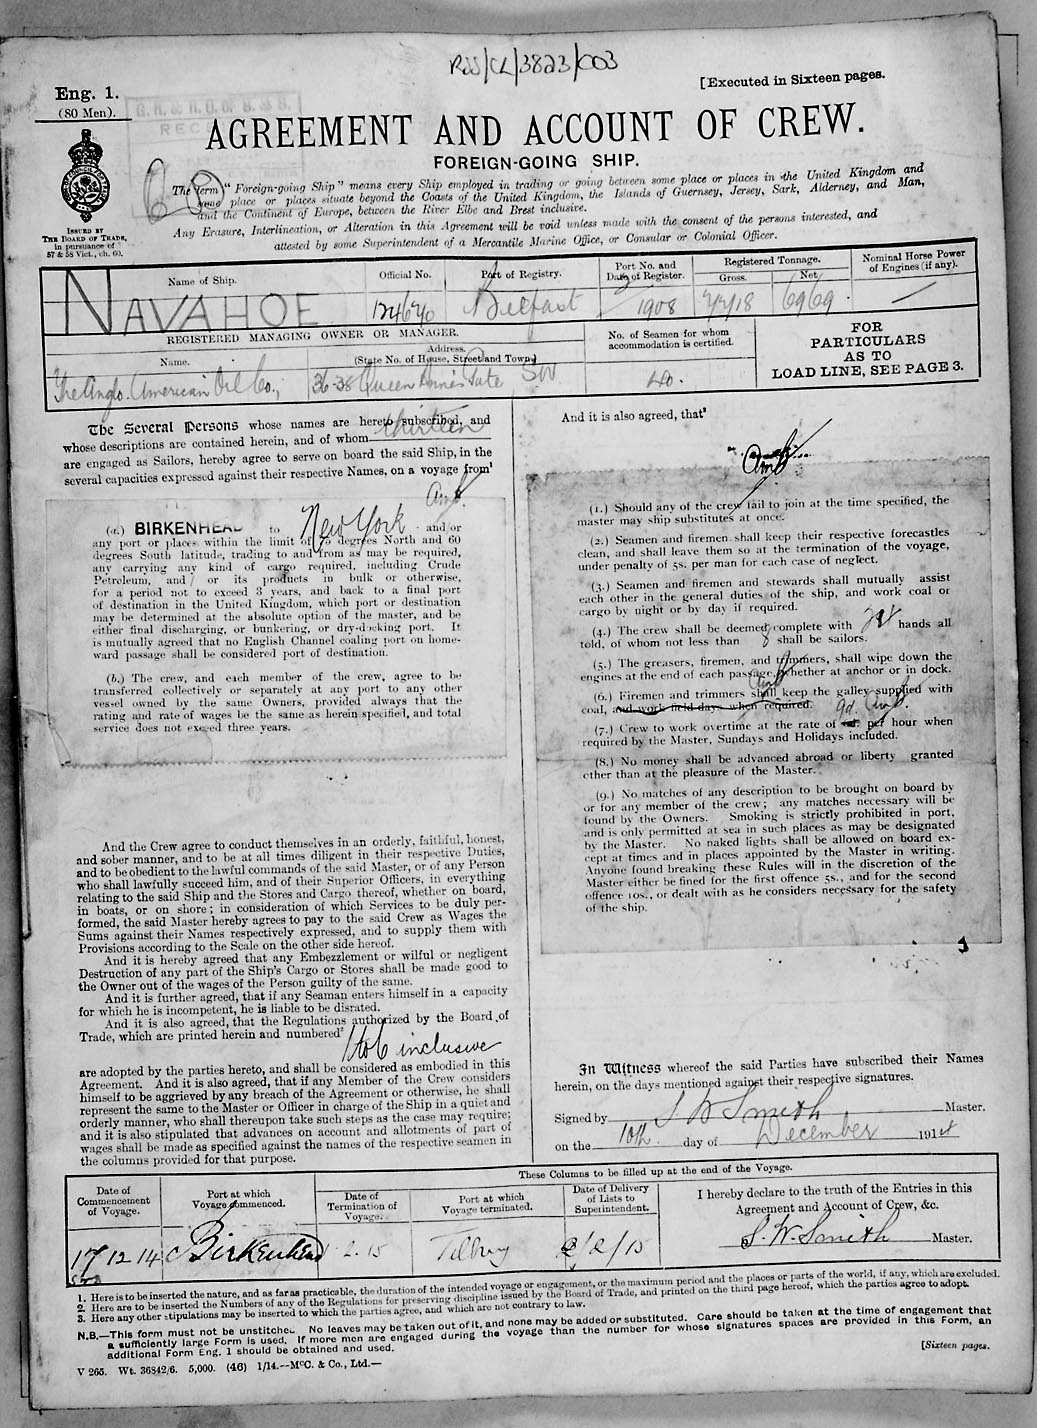 RSS/CL/3823/003
Eng. 1.
(80 Men).
[Executed in Sixteen pages.
AGREEMENT AND ACCOUNT OF CREW.
FOREIGN-GOING SHIP.
ISSUED BY
THE BOARD OF TRADE,
in pursuance of
57 & 58 Vict., ch. 60.
The term "Foreign-going Ship" means every Ship employed in trading or going between some place or places in the United Kingdom and
some place or places situate beyond the Coasts of the United Kingdom, the Islands of Guernsey, Jersey, Sark, Alderney, and Man,
and the Continent of Europe, between the River Elbe and Brest inclusive.
Any Erasure, Interlineation, or Alteration in this Agreement will be void unless made with the consent of the persons interested, and
attested by some Superintendent of a Mercantile Marine Office, or Consular or Colonial Officer.
Name of Ship. Official No. Port of Registry. Port No. and Date of Register. Registered Tonnage. Gross. Net. Nominal Horse Power of Engines (if any).
NAVAHOE Belfast 1908 7718 6969
REGISTERED MANAGING OWNER OR MANAGER.
Name. Address. (State No. of House, Street and Town.)
No. of Seamen for whom accommodation is certified.
FOR
PARTICULARS
AS TO
LOAD LINE, SEE PAGE 3.
The Anglo-American Oil Co., 36-38 Queen Anne's Gate SW 40.
The Several Persons whose names are hereto subscribed, and
whose descriptions are contained herein, and of whom thirteen
are engaged as Sailors, hereby agree to serve on board the said Ship, in the
several capacities expressed against their respective Names, on a voyage from¹
(a.) BIRKENHEAD to New York and/or
any port or places within the limit of 75 degrees North and 60
degrees South latitude, trading to and from as may be required,
any carrying any kind of cargo required, including Crude
Petroleum, and/or its products in bulk or otherwise,
for a period not to exceed 3 years, and back to a final port
of destination in the United Kingdom, which port or destination
may be determined at the absolute option of the master, and be
either final discharging, or bunkering, or dry-docking port. It
is mutually agreed that no English Channel coaling port on home-
ward passage shall be considered port of destination.
(b.) The crew, and each member of the crew, agree to be
transferred collectively or separately at any port to any other
vessel owned by the same Owners, provided always that the
rating and rate of wages be the same as herein specified, and total
service does not exceed three years.
And the Crew agree to conduct themselves in an orderly, faithful, honest,
and sober manner, and to be at all times diligent in their respective Duties,
and to be obedient to the lawful commands of the said Master, or of any Person
who shall lawfully succeed him, and of their Superior Officers, in everything
relating to the said Ship and the Stores and Cargo thereof, whether on board,
in boats, or on shore; in consideration of which Services to be duly per-
formed, the said Master hereby agrees to pay to the said Crew as Wages the
Sums against their Names respectively expressed, and to supply them with
Provisions according to the Scale on the other side hereof.
And it is hereby agreed that any Embezzlement or wilful or negligent
Destruction of any part of the Ship's Cargo or Stores shall be made good to
the Owner out of the wages of the Person guilty of the same.
And it is further agreed, that if any Seaman enters himself in a capacity
for which he is incompetent, he is liable to be disrated.
And it is also agreed, that the Regulations authorized by the Board of
Trade, which are printed herein and numbered²
1 to 6 inclusive
are adopted by the parties hereto, and shall be considered as embodied in this
Agreement. And it is also agreed, that if any Member of the Crew considers
himself to be aggrieved by any breach of the Agreement or otherwise, he shall
represent the same to the Master or Officer in charge of the Ship in a quiet and
orderly manner, who shall thereupon take such steps as the case may require;
and it is also stipulated that advances on account and allotments of part of
wages shall be made as specified against the names of the respective seamen in
the columns provided for that purpose.
And it is also agreed, that³
(1.) Should any of the crew fail to join at the time specified, the
master may ship substitutes at once.
(2.) Seamen and firemen shall keep their respective forecastles
clean, and shall leave them so at the termination of the voyage,
under penalty of 5s. per man for each case of neglect.
(3.) Seamen and firemen and stewards shall mutually assist
each other in the general duties of the ship, and work coal or
cargo by night or by day if required.
(4.) The crew shall be deemed complete with hands all
told, of whom not less than 8 shall be sailors.
(5.) The greasers, firemen, and trimmers, shall wipe down the
engines at the end of each passage, whether at anchor or in dock.
(6.) Firemen and trimmers shall keep the galley supplied with
coal, and work field days when required.
(7.) Crew to work overtime at the rate of 9d. per hour when
required by the Master, Sundays and Holidays included.
(8.) No money shall be advanced abroad or liberty granted
other than at the pleasure of the Master.
(9.) No matches of any description to be brought on board by
or for any member of the crew; any matches necessary will be
found by the Owners. Smoking is strictly prohibited in port,
and is only permitted at sea in such places as may be designated
by the Master. No naked lights shall be allowed on board ex-
cept at times and in places appointed by the Master in writing.
Anyone found breaking these Rules will in the discretion of the
Master either be fined for the first offence 5s., and for the second
offence 10s., or dealt with as he considers necessary for the safety
of the ship.
In Witness whereof the said Parties have subscribed their Names
herein, on the days mentioned against their respective signatures.
Signed by S W Smith Master.
on the 10th day of December 1914
These Columns to be filled up at the end of the Voyage.
Date of Commencement of Voyage. Port at which Voyage commenced. Date of Termination of Voyage. Port at which Voyage terminated. Date of Delivery of Lists to Superintendent.
I hereby declare to the truth of the Entries in this
Agreement and Account of Crew, &c.
17 12 14 Birkenhead 1.2.15 Tilbury 2/2/15 S. W. Smith Master.
1. Here is to be inserted the nature, and as far as practicable, the duration of the intended voyage or engagement, or the maximum period and the places or parts of the world, if any, which are excluded.
2. Here are to be inserted the Numbers of any of the Regulations for preserving discipline issued by the Board of Trade, and printed on the third page hereof, which the parties agree to adopt.
3. Here any other stipulations may be inserted to which the parties agree, and which are not contrary to law.
N.B.—This form must not be unstitched. No leaves may be taken out of it, and none may be added or substituted. Care should be taken at the time of engagement that
a sufficiently large Form is used. If more men are engaged during the voyage than the number for whose signatures spaces are provided in this Form, an
additional Form Eng. 1 should be obtained and used.
[Sixteen pages.
V 265. Wt. 36842/6. 5,000. (46) 1/14.—McC. & Co., Ltd.—